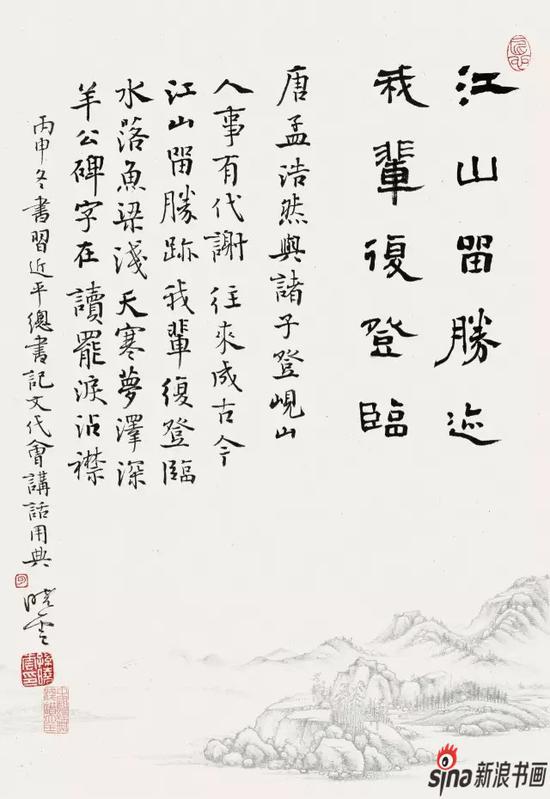 江山留勝迹
我輩復登臨
唐孟浩然與諸子登峴山
人事有代謝 往來成古今
江山留勝跡 我輩復登臨
水落魚梁淺 天寒夢澤深
羊公碑字在 讀罷淚沾襟
丙申冬書習近平總書記文代會講話用典
曉雲
sina新浪书画